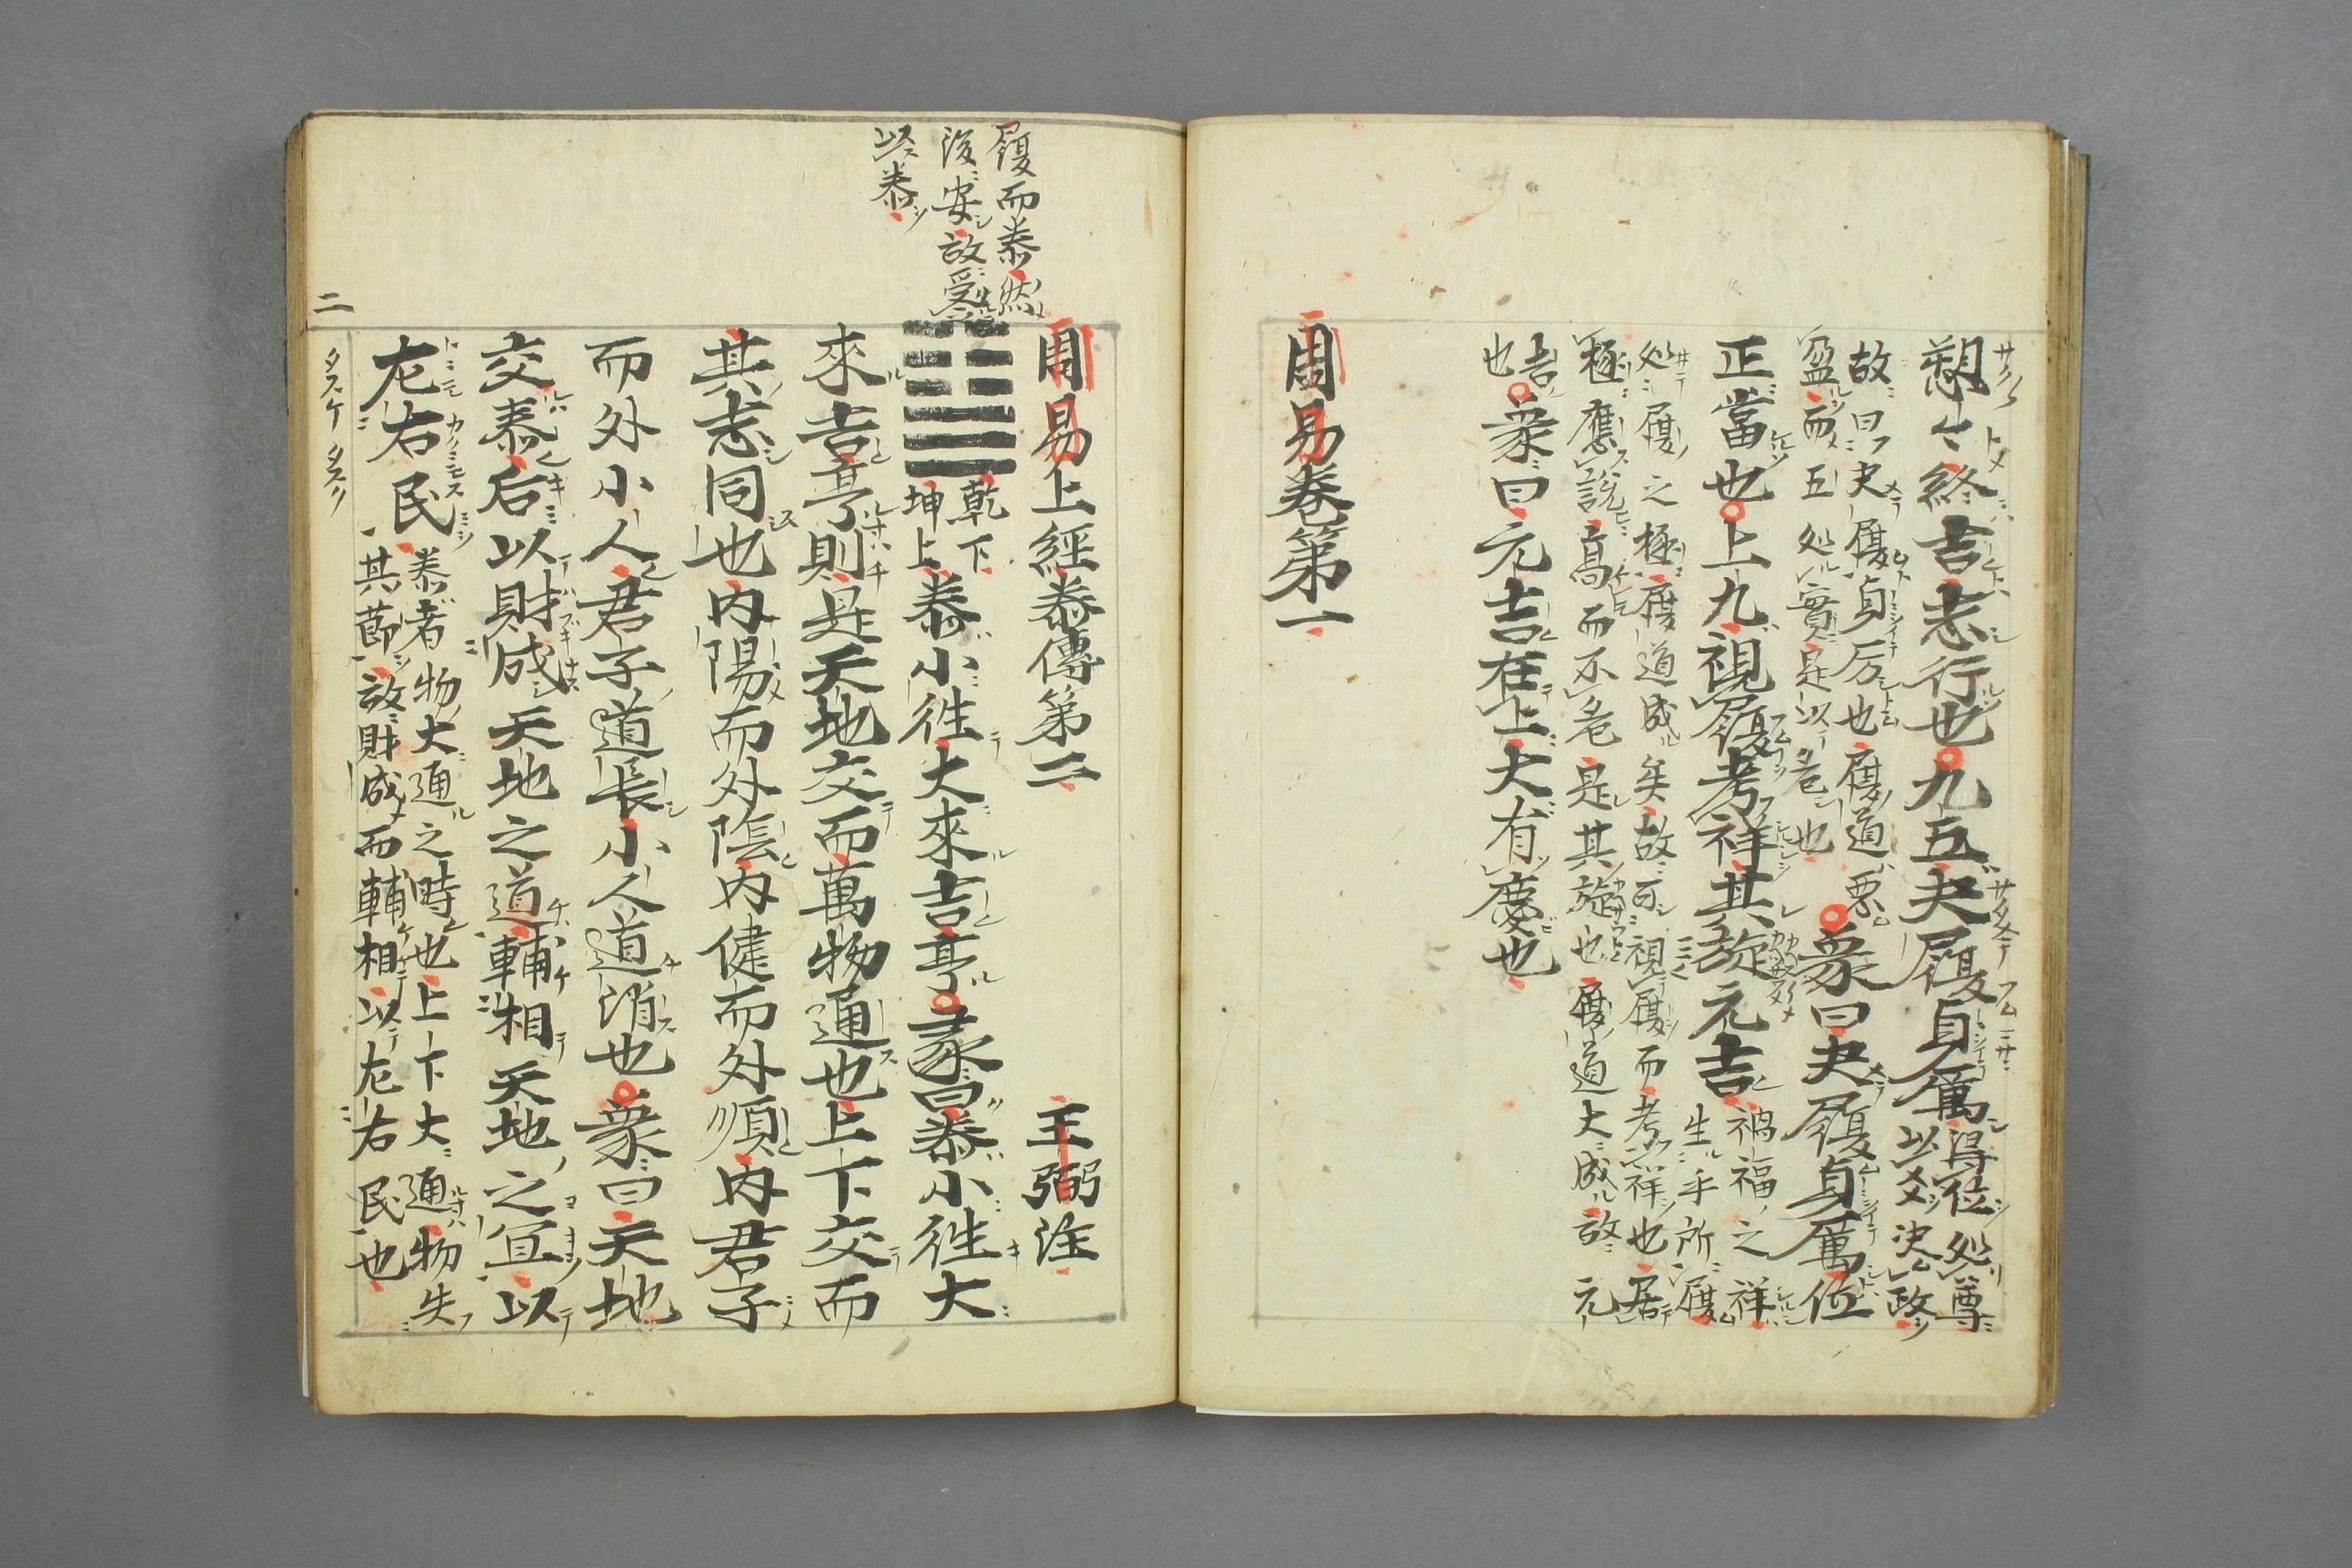 愬〻終吉志行也九五夬履貞厲得位処尊
以爻決政
故曰夬履貞厉也履道惡
盈而五処實是以危也象曰夬履貞厲位
正當也上九視履考祥其旋元吉禍福之祥
生乎所履
処履之極履道成矣故可視履而考祥也居
極應説高而不危是其旋也履道大成故元
吉
也象曰元吉在上大有慶也
周易卷第一
履而泰然
後安故受
以泰
周易上經泰傳第二 王弼注
乾下
坤上泰小徃大來吉亨彖曰泰小徃大
來吉亨則是天地交而萬物通也上下交而
其志同也内陽而外陰内健而外順内君子
而外小人君子道長小人道消也象曰天地
交泰后以財成天地之道輔相天地之宜以
左右民泰者物大通之時也上下大通物失
其莭故財成而輔相以左右民也
タスケ タスク
二